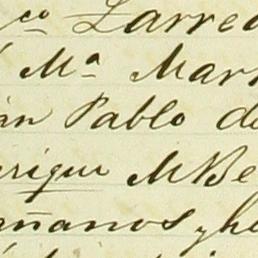 co Larrea
Ma Mar
an Pablo de
nrique M Be
añanos y he